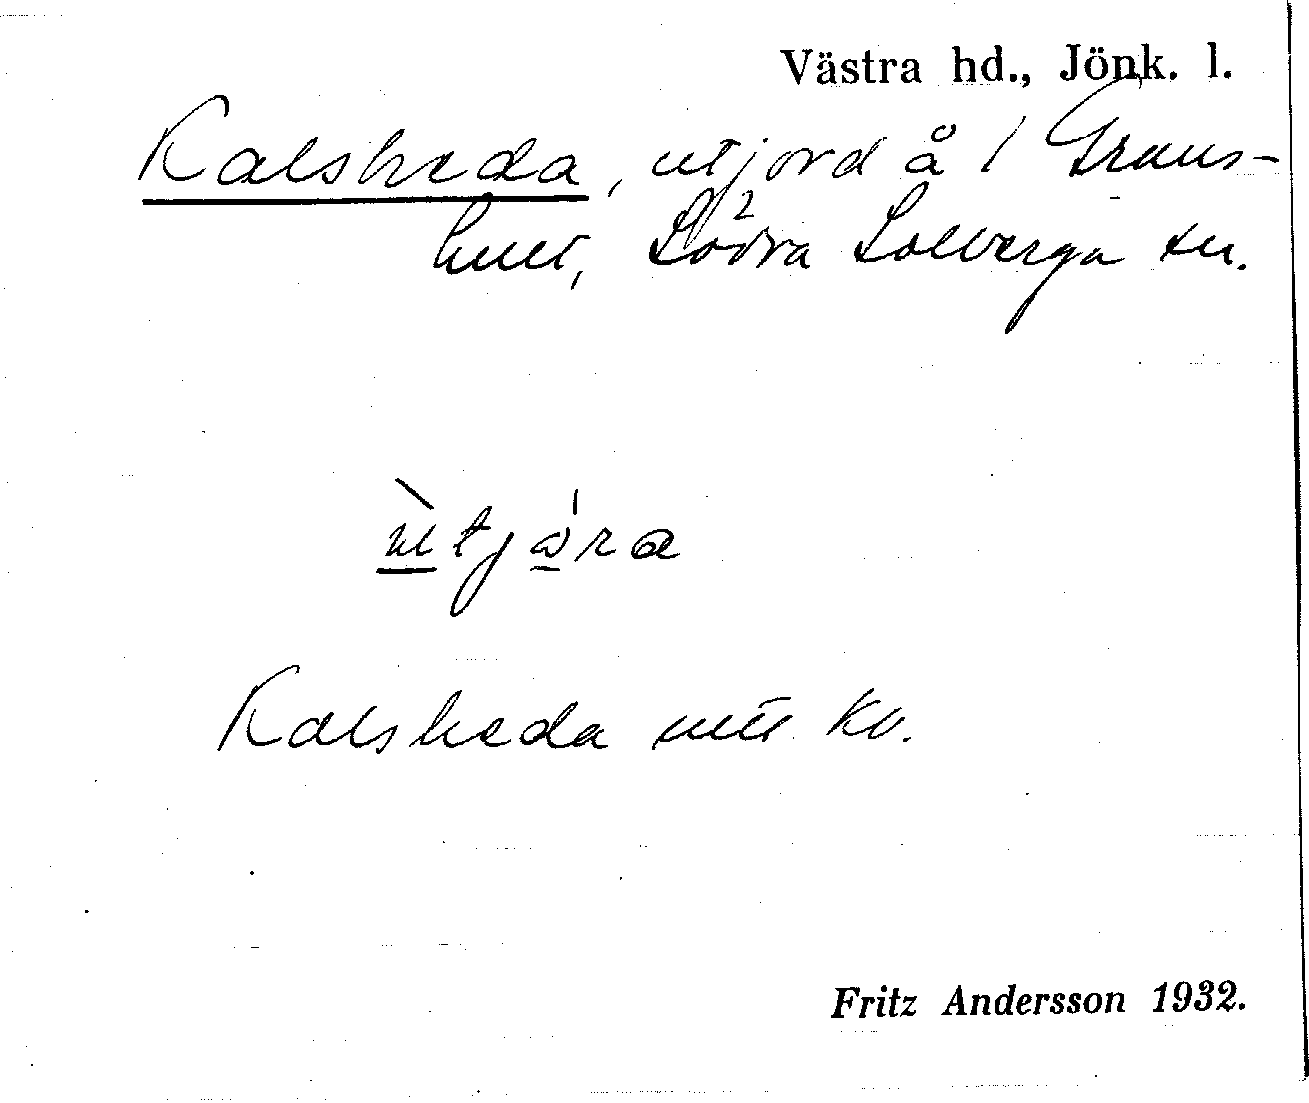 Västra hd., Jönk. l.
Kalsheda, utjord å 1 Grans-
hult, Södra Solberga sn.
ùtjara
Kalsheda utj. kv.
Fritz Andersson 1932.